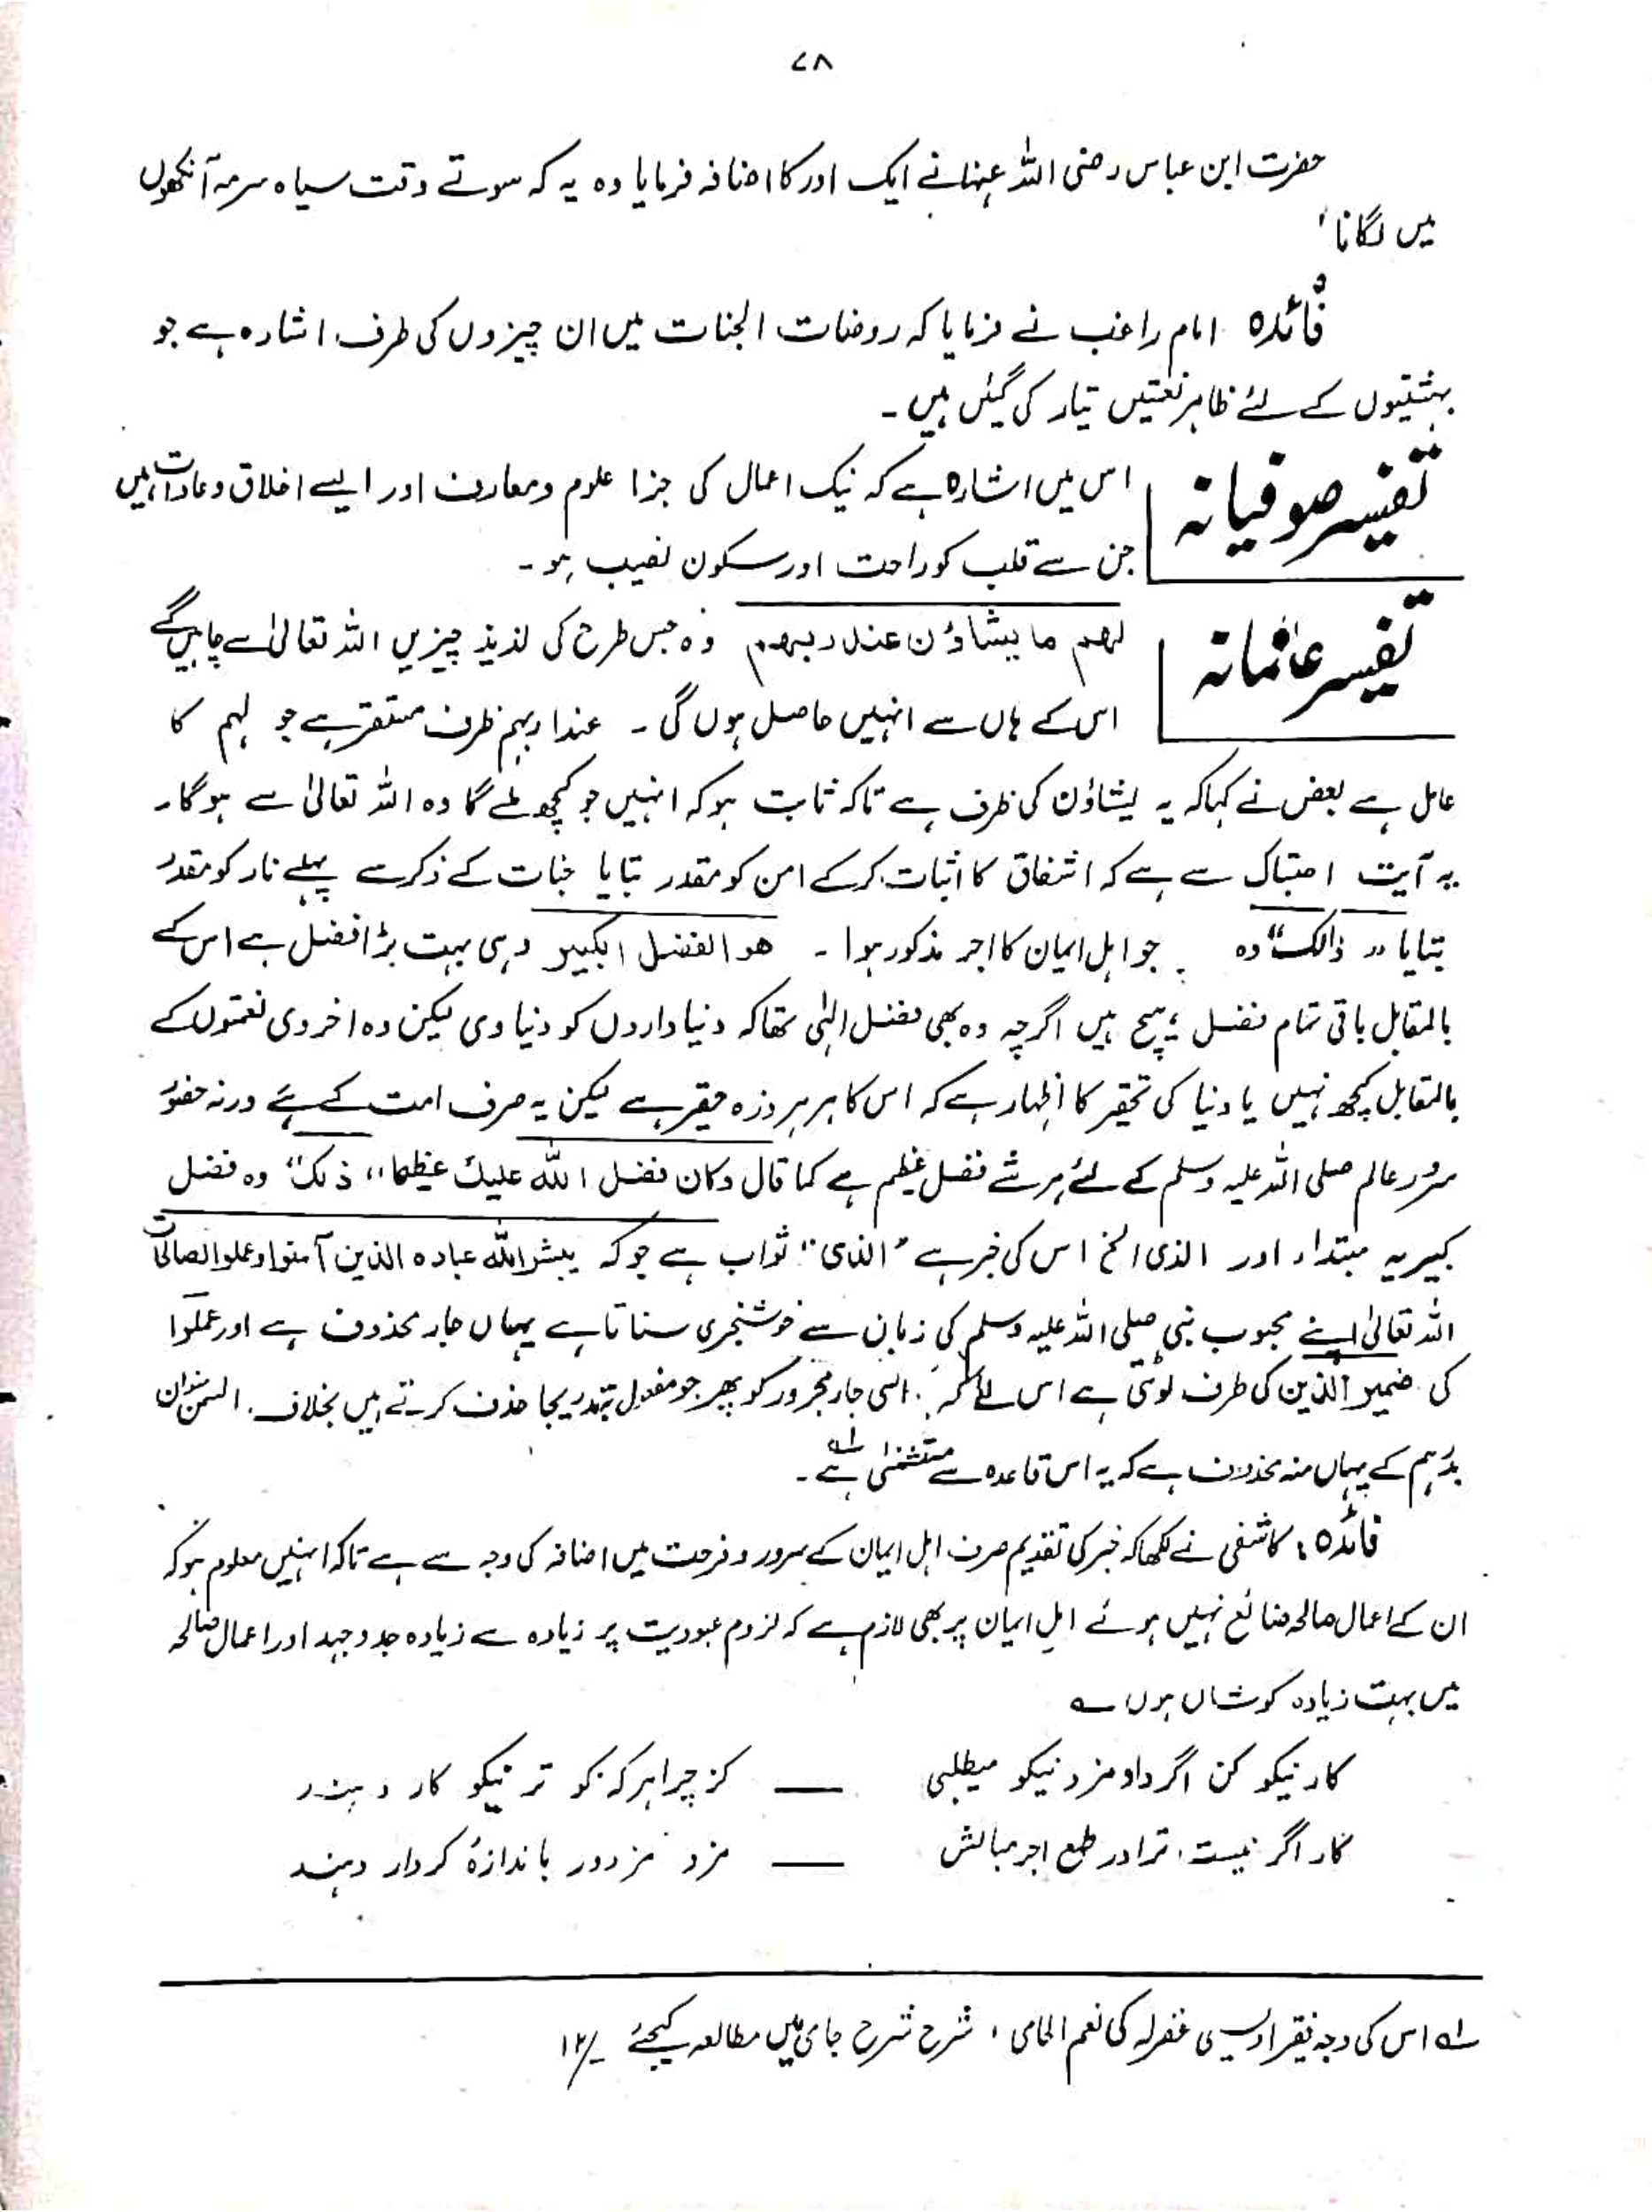 ۷۸
حضرت ابن عباس رضی اللہ عنہما نے ایک اور کا اضافہ فرمایا وہ یہ کہ سوتے وقت سیاہ سرمہ آنکھوں
میں لگانا'
فائدہ امام راغب نے فرمایا کہ روضات الجنات میں ان چیزوں کی طرف اشارہ ہے جو
بہشتیوں کے لئے ظاہر نعمتیں تیار کی گئی ہیں۔
تفسیر صوفیانہ
اس میں اشارہ ہے کہ نیک اعمال کی جزا علوم و معارف اور ایسے اخلاق و عادات ہیں
جن سے قلب کو راحت اور سکون نصیب ہو۔
تفسیر عالمانہ
لهم ما يشاؤن عند ربهم وہ جس طرح کی لذیذ چیزیں اللہ تعالیٰ سے چاہیں گے
اس کے ہاں سے انہیں حاصل ہوں گی۔ عند ربہم ظرف مستقر ہے جو لہم کا
عامل ہے بعض نے کہا کہ یہ یشاؤن کی ظرف ہے تاکہ ثابت ہو کہ انہیں جو کچھ ملے گا وہ اللہ تعالیٰ سے ہوگا۔
یہ آیت احتباک سے ہے کہ اشفاق کا اثبات کرکے امن کو مقدر بتایا جنات کے ذکر سے پہلے نار کو مقدر
بتایا "ذالک" وہ جو اہل ایمان کا اجر مذکور ہوا۔ هو الفضل الكبير وہی بہت بڑا فضل ہے اس کے
بالمقابل باقی تمام فضل ہیچ ہیں اگرچہ وہ بھی فضل الٰہی تھا کہ دنیا داروں کو دنیا دی لیکن وہ اخروی نعمتوں کے
بالمقابل کچھ نہیں یا دنیا کی تحقیر کا اظہار ہے کہ اس کا ہر ہر ذرہ حقیر ہے لیکن یہ صرف امت کے لئے ورنہ حضور
سرور عالم صلی اللہ علیہ وسلم کے لئے ہر شے فضل عظیم ہے کما قال وكان فضل الله عليك عظيما "ذلک" وہ فضل
کبیر یہ مبتداء اور الذی الخ اس کی خبر ہے "الذی" ثواب ہے جو کہ يبشر الله عباده الذين آمنوا وعملوا الصالحات
اللہ تعالیٰ اپنے محبوب نبی صلی اللہ علیہ وسلم کی زبان سے خوشخبری سناتا ہے یہاں جار محذوف ہے اور عملوا
کی ضمیر الذین کی طرف لوٹتی ہے اس لئے کہ اسی جار مجرور کو پھر جو مفعول تدریجا حذف کرتے ہیں بخلاف السمن منوان
بدرہم کے یہاں منہ محذوف ہے کہ یہ اس قاعدہ سے مستثنیٰ ہے لہ۔
فائدہ: کاشفی نے لکھا کہ خبر کی تقدیم صرف اہل ایمان کے سرور و فرحت میں اضافہ کی وجہ سے ہے تاکہ انہیں معلوم ہو کہ
ان کے اعمال صالحہ ضائع نہیں ہوئے اہل ایمان پر بھی لازم ہے کہ لزوم عبودیت پر زیادہ سے زیادہ جد و جہد اور اعمال صالحہ
میں بہت زیادہ کوشاں ہوں ؎
کار نیکو کن اگر داد مزد نیکو میطلبی — کز چرا ہر کہ نکو تر نیکو کار دہند
کار اگر نیست ترا در طمع اجر مباش — مزد مزدور باندازۂ کردار دہند
لہ اس کی وجہ فقیر اویسی غفرلہ کی نعم الحامی، شرح شرح جامی میں مطالعہ کیجئے ۱۲/